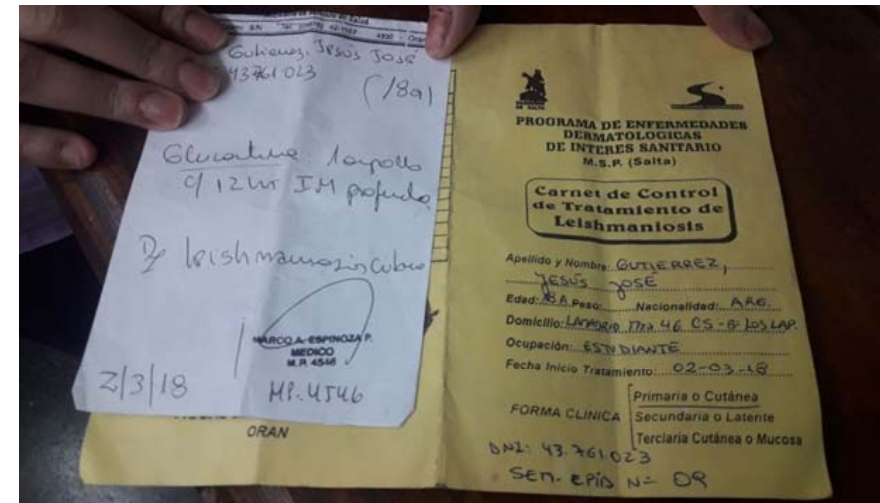 Gutierrez, Jesús José
43.761.023
(18a)
1 ampolla
c/ 12 hr IM profunda
MARCO A. ESPINOZA P.
MEDICO
M.P. 4546
2/3/18
MP. 4546
ORAN
PROGRAMA DE ENFERMEDADES
DERMATOLOGICAS
DE INTERES SANITARIO
M.S.P. (Salta)
Carnet de Control
de Tratamiento de
Leishmaniosis
Apellido y Nombre: GUTIERREZ,
JESÚS JOSÉ
Edad: 18 A Peso: Nacionalidad: ARG.
Domicilio: LAMADRID Mza 46 CS - Bº LOS LAP.
Ocupación: ESTUDIANTE
Fecha Inicio Tratamiento: 02-03-18
FORMA CLINICA
Primaria o Cutánea
Secundaria o Latente
Terciaria Cutánea o Mucosa
DNI: 43.761.023
SEM. EPID Nº 09